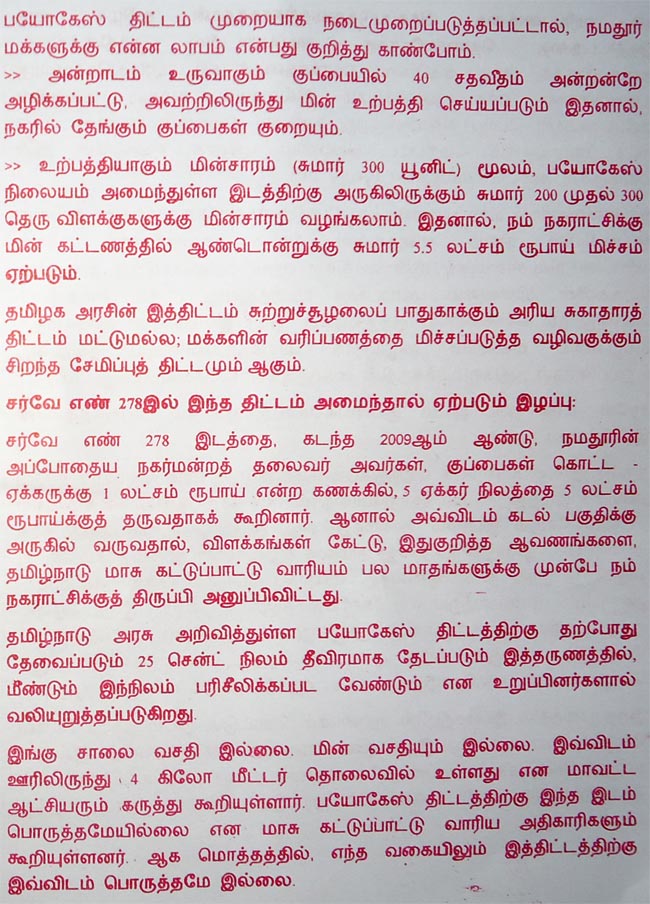 பயோகேஸ் திட்டம் முறையாக நடைமுறைப்படுத்தப்பட்டால், நமதூர்
மக்களுக்கு என்ன லாபம் என்பது குறித்து காண்போம்.
>> அன்றாடம் உருவாகும் குப்பையில் 40 சதவீதம் அன்றன்றே
அழிக்கப்பட்டு, அவற்றிலிருந்து மின் உற்பத்தி செய்யப்படும் இதனால்,
நகரில் தேங்கும் குப்பைகள் குறையும்.
>> உற்பத்தியாகும் மின்சாரம் (சுமார் 300 யூனிட்) மூலம், பயோகேஸ்
நிலையம் அமைந்துள்ள இடத்திற்கு அருகிலிருக்கும் சுமார் 200 முதல் 300
தெரு விளக்குகளுக்கு மின்சாரம் வழங்கலாம். இதனால், நம் நகராட்சிக்கு
மின் கட்டணத்தில் ஆண்டொன்றுக்கு சுமார் 5.5 லட்சம் ரூபாய் மிச்சம்
ஏற்படும்.
தமிழக அரசின் இத்திட்டம் சுற்றுச்சூழலைப் பாதுகாக்கும் அரிய சுகாதாரத்
திட்டம் மட்டுமல்ல; மக்களின் வரிப்பணத்தை மிச்சப்படுத்த வழிவகுக்கும்
சிறந்த சேமிப்புத் திட்டமும் ஆகும்.
சர்வே எண் 278இல் இந்த திட்டம் அமைந்தால் ஏற்படும் இழப்பு:
சர்வே எண் 278 இடத்தை, கடந்த 2009ஆம் ஆண்டு, நமதூரின்
அப்போதைய நகர்மன்றத் தலைவர் அவர்கள், குப்பைகள் கொட்ட -
ஏக்கருக்கு 1 லட்சம் ரூபாய் என்ற கணக்கில், 5 ஏக்கர் நிலத்தை 5 லட்சம்
ரூபாய்க்குத் தருவதாகக் கூறினார். ஆனால் அவ்விடம் கடல் பகுதிக்கு
அருகில் வருவதால், விளக்கங்கள் கேட்டு, இதுகுறித்த ஆவணங்களை,
தமிழ்நாடு மாசு கட்டுப்பாட்டு வாரியம் பல மாதங்களுக்கு முன்பே நம்
நகராட்சிக்குத் திருப்பி அனுப்பிவிட்டது.
தமிழ்நாடு அரசு அறிவித்துள்ள பயோகேஸ் திட்டத்திற்கு தற்போது
தேவைப்படும் 25 சென்ட் நிலம் தீவிரமாக தேடப்படும் இத்தருணத்தில்,
மீண்டும் இந்நிலம் பரிசீலிக்கப்பட வேண்டும் என உறுப்பினர்களால்
வலியுறுத்தப்படுகிறது.
இங்கு சாலை வசதி இல்லை. மின் வசதியும் இல்லை. இவ்விடம்
ஊரிலிருந்து 4 கிலோ மீட்டர் தொலைவில் உள்ளது என மாவட்ட
ஆட்சியரும் கருத்து கூறியுள்ளார். பயோகேஸ் திட்டத்திற்கு இந்த இடம்
பொருத்தமேயில்லை என மாசு கட்டுப்பாட்டு வாரிய அதிகாரிகளும்
கூறியுள்ளனர். ஆக மொத்தத்தில், எந்த வகையிலும் இத்திட்டத்திற்கு
இவ்விடம் பொருத்தமே இல்லை.